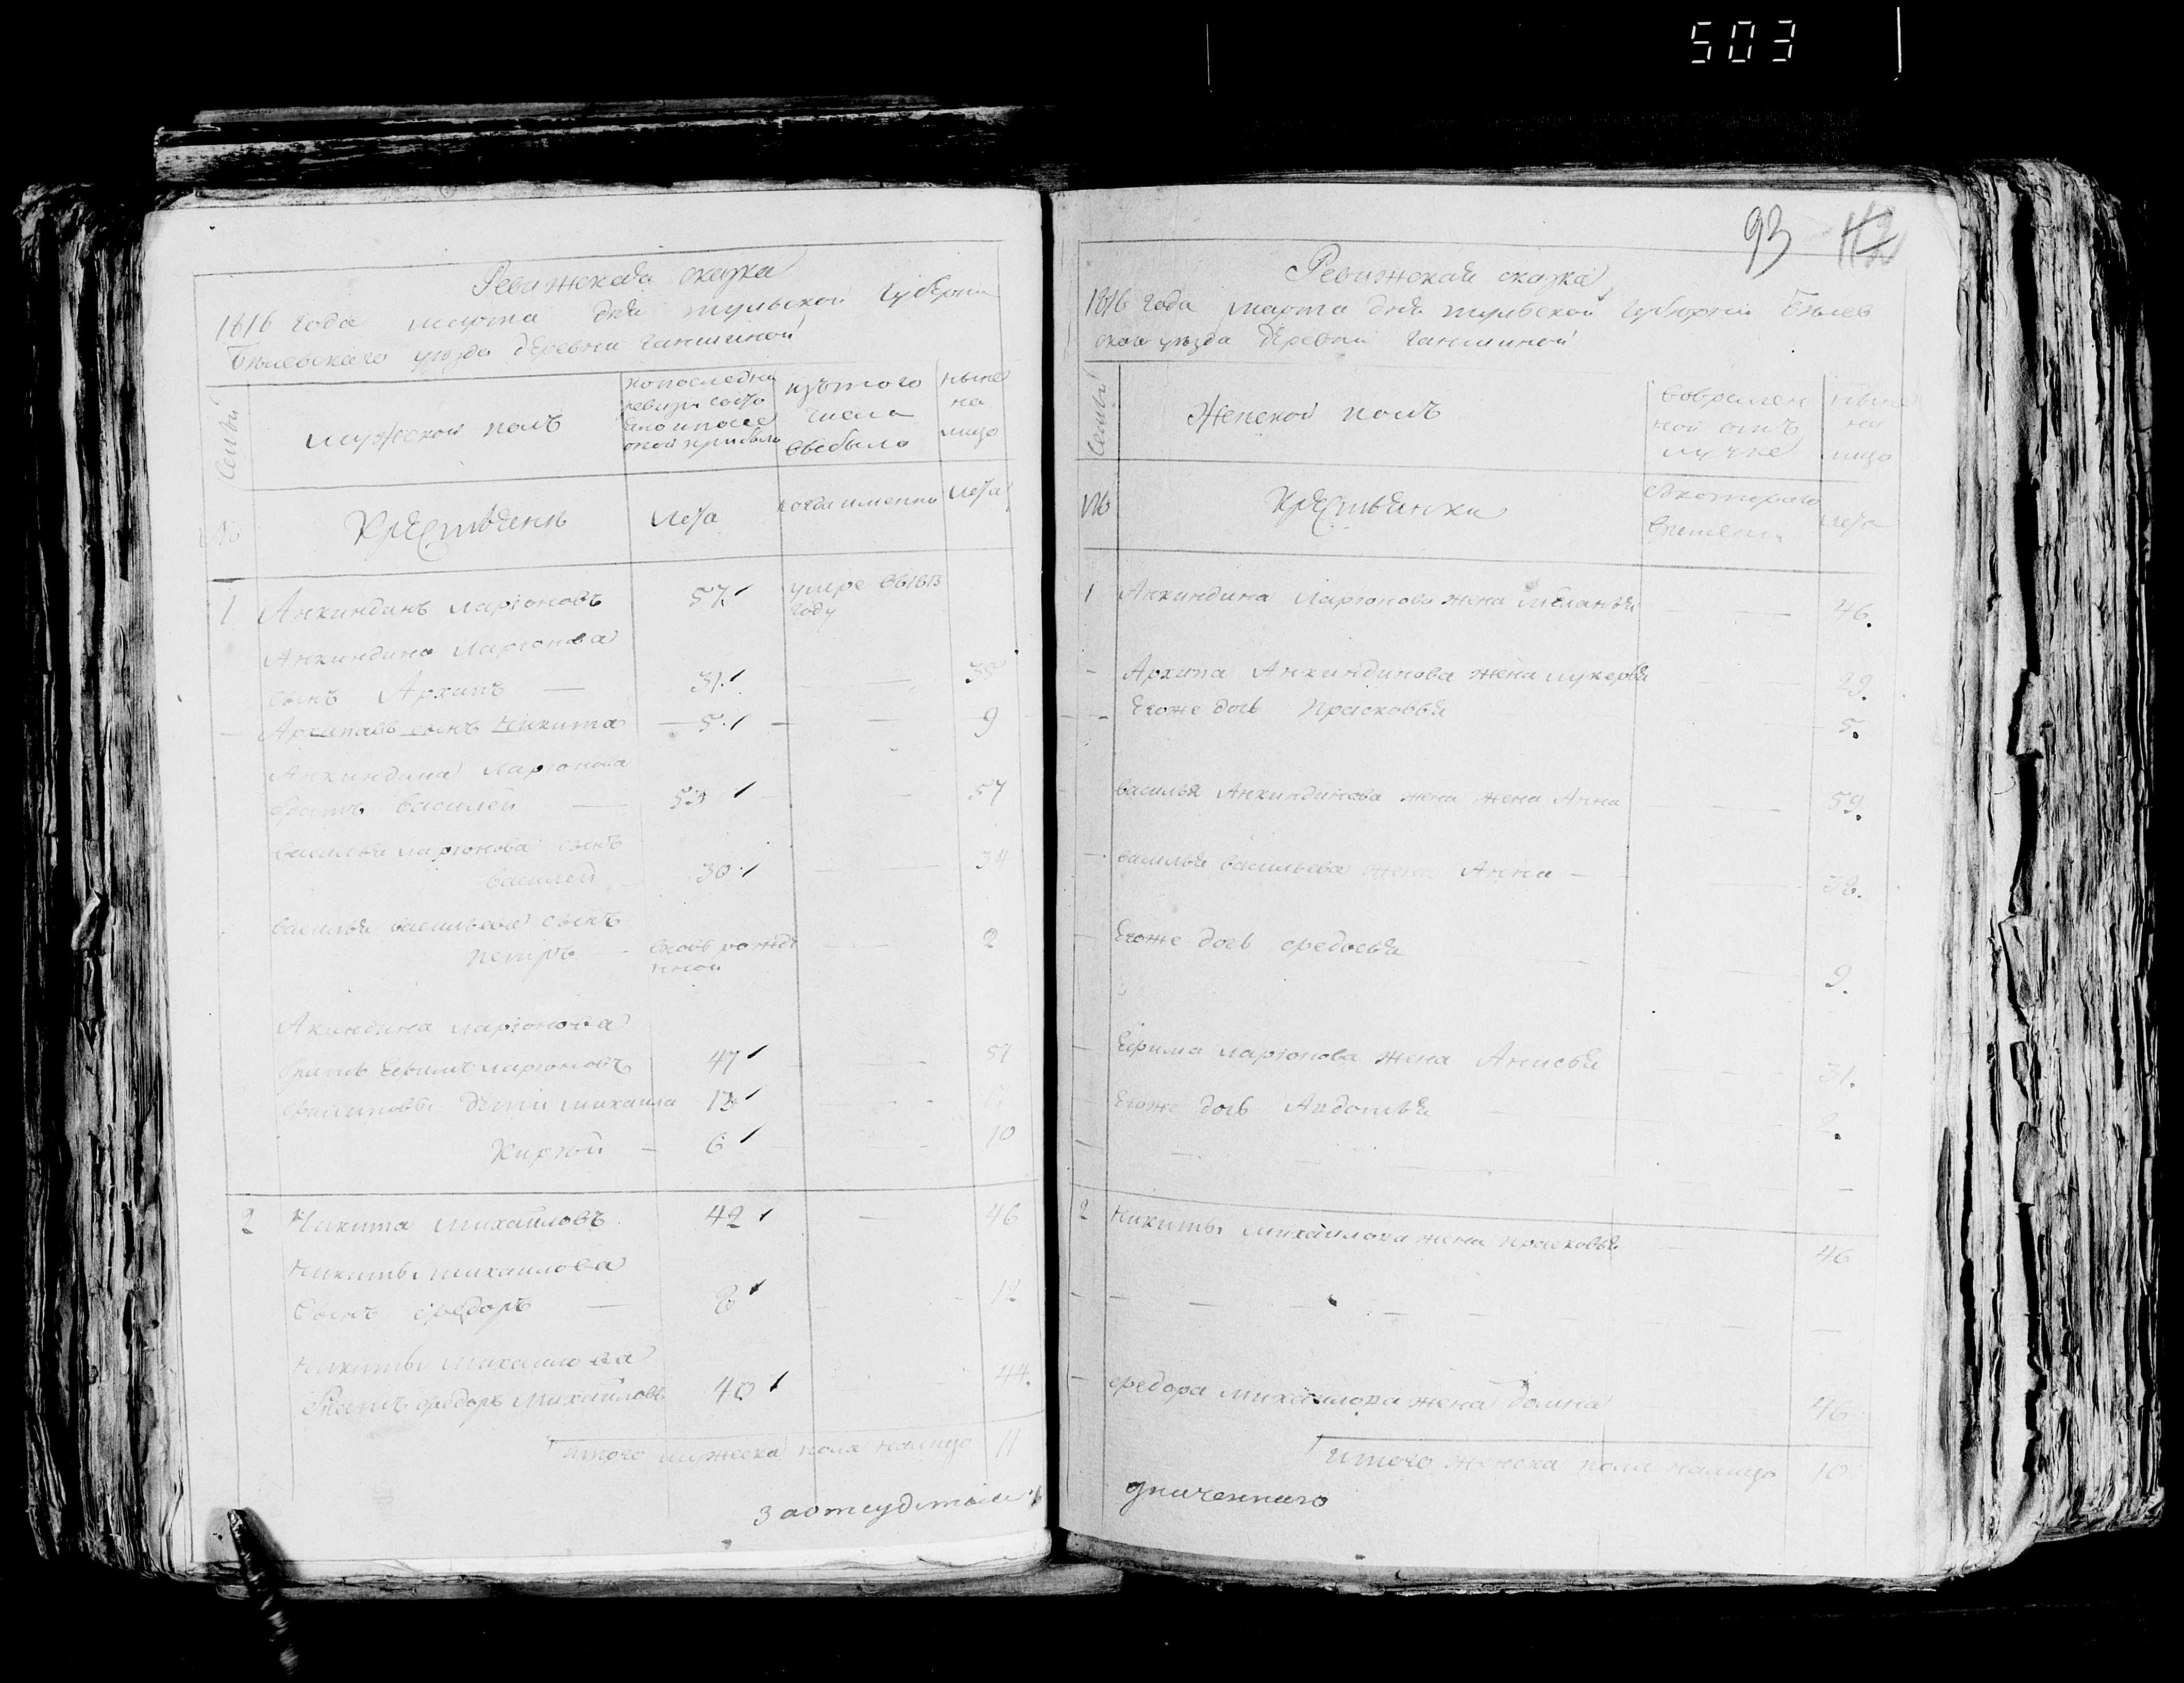 503
Ревижская сказка
1816 года марта дня тульской губернии
Белевскаго уезда деревни ганшиной
Семьи
мужеской полъ
изътого
числа
выбыло
ныне
на
лицо
№
Крестьяне
Лета
когда именно
Лета
1 Анкиндинъ ларионовъ 57 умре в 1813
году
Анкиндина Ларионова
сынъ Архипъ — 31 — — 35
Архиповъ сынъ Никита — 5 — — 9
Анкиндина Ларионова
братъ Василей — 53 — 57
василья ларионова сынъ
василей 30 — — 34
василья васильева сынъ
петръ — вновь рожде — 2
нной
Акиндина ларионова
братъ Ефимъ ларионовъ 47 — 51
дети михаила 13
6 — 10
2 Никита михайловъ 42 — 46
Никиты михаилова
Сынъ федоръ — 8 — 12
Никиты михаилова
братъ федоръ михайловъ 40 — 44.
итого мужеска пола налицо 11
93
Ревижская сказка
1816 года марта дня тульской губернии Белев
скаго уезда деревни ганшиной
Семьи
Женской полъ
вовремен
ной отъ
лучке
ныне
на
лицо
№
Крестьянки
съкотораго
времени
лета
1 Анкиндина Ларионова жена Меланья — 46.
- Архипа Анкиндинова жена лукерья — 29.
- Егоже дочь Прасковья — 5.
василья Анкиндинова жена жена Анна — 59.
- василья васильева жена Анна — 38.
- Егоже дочь федосья — 9.
- Ефима ларионова жена Анисья — 31.
- Егоже дочь Авдотья — 2.
2 Никиты михаилова жена прасковья — 46
- федора михаилова жена домна 46
итого женска пола налицо 10